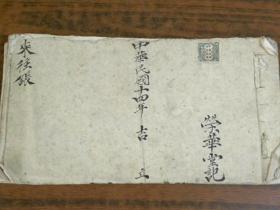 榮華堂記
中華民國十四年 吉 立
來往賬